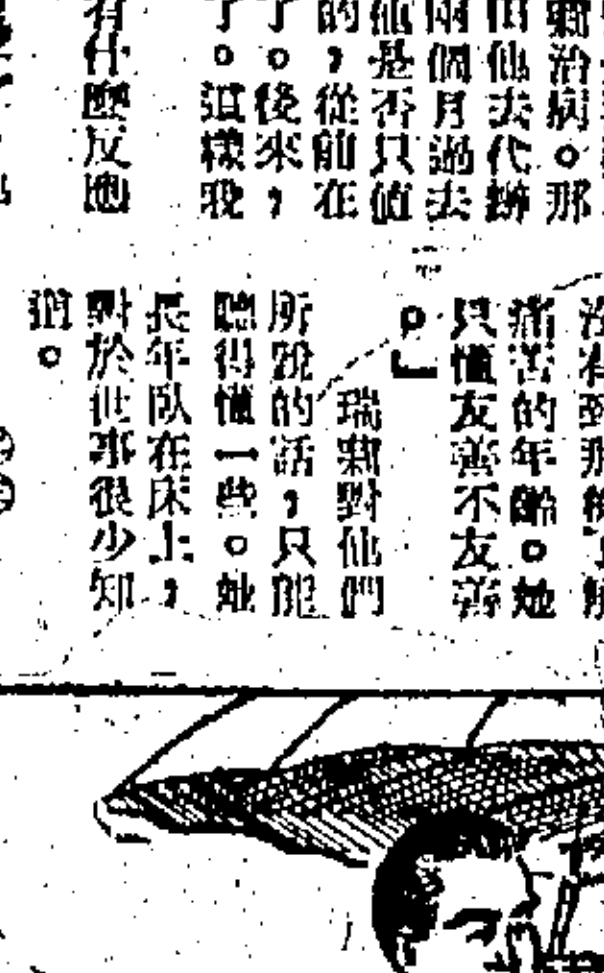 治病。那
由他去代辦
兩個月過去
他是否只值
的，從前在
了。後來，
了。這樣我
有什麼反應
痛苦的年齡。她
只懂友善不友善
。」
瑞對他們
所說的話，只能
聽得懂一些。她
長年臥在床上，
對於世事很少知
道。